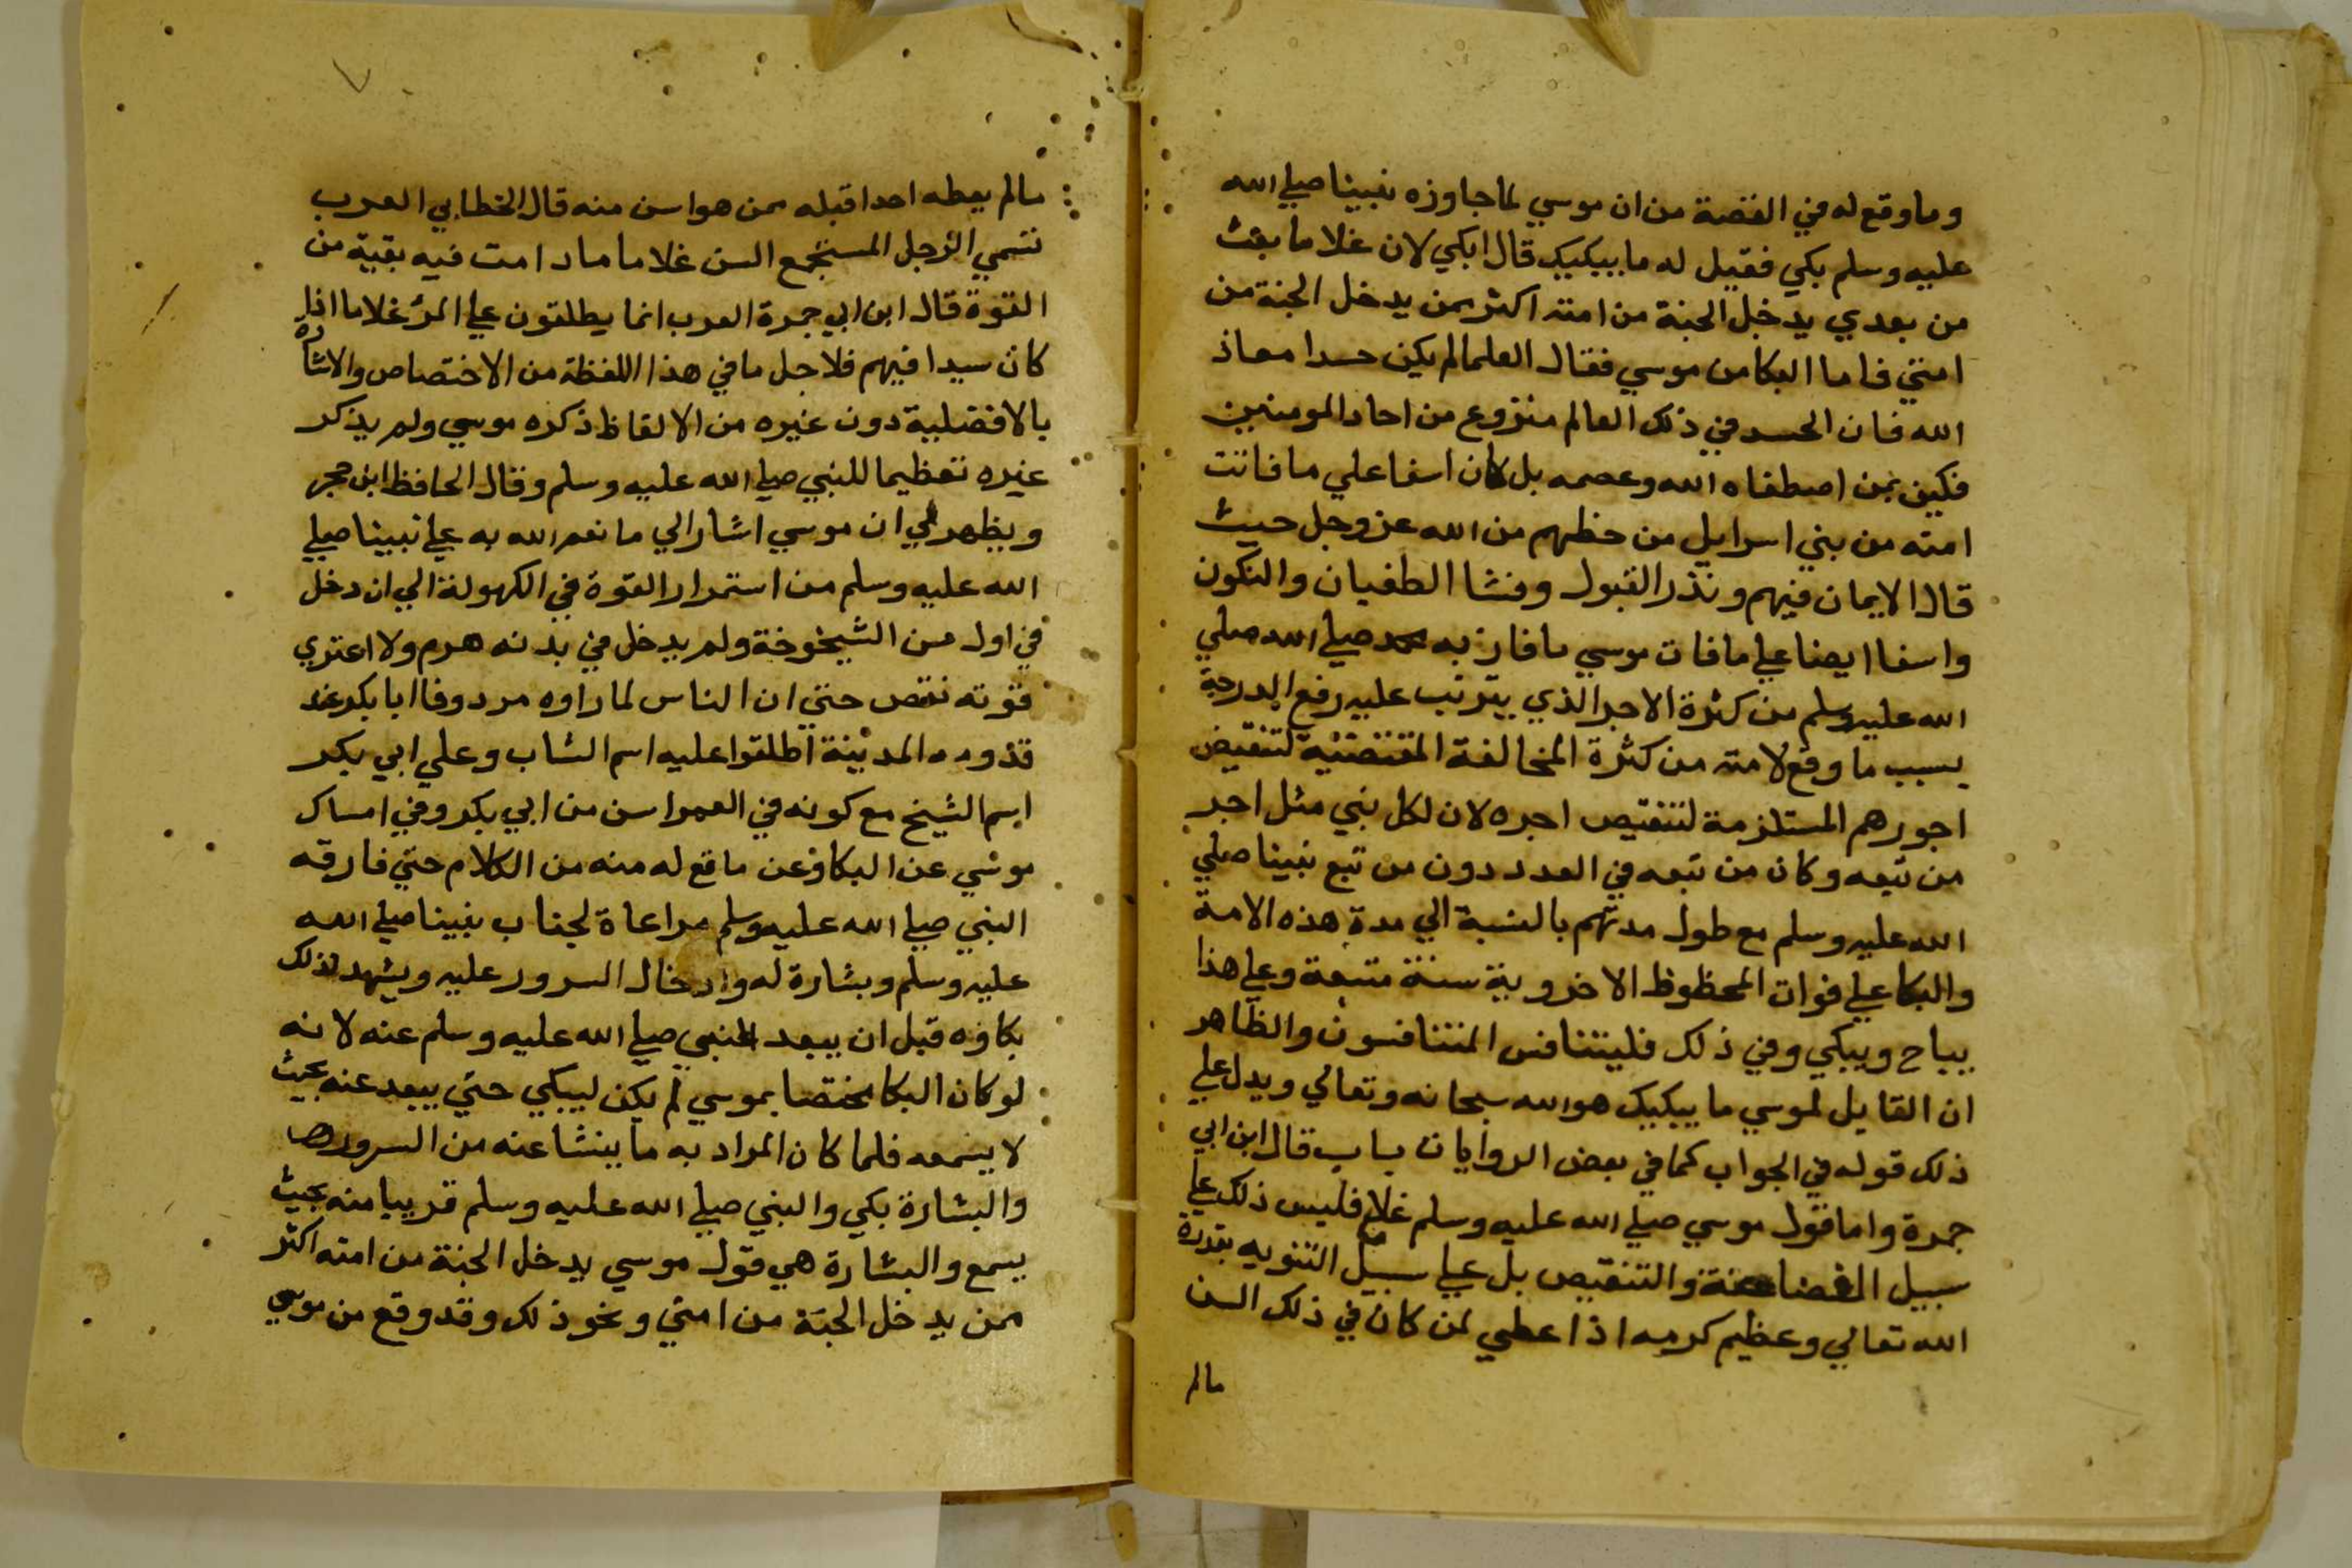 وما وقع له في القصة من ان موسي لما جاوزه نبينا صلي الله
عليه وسلم بكي فقيل له ما يبكيك قال ابكي لان غلاما بعث
من بعدي يدخل الجنة من امته اكثر ممن يدخل الجنة من
امتي فاما البكا من موسي فقال العلما لم يكن حسدا معاذ
الله فان الحسد في ذلك العالم منزوع من احاد المومنين
فكيف بمن اصطفاه الله وعصمه بل كان اسفا علي ما فاتت
امته من بني اسرايل من حظهم من الله عز وجل حيث
قال الايمان فيهم ونذر القبول وفشا الطغيان والنكون
واسفا ايضا علي ما فات موسي ما فاز به محمد صلي الله صلي
الله عليه وسلم من كثرة الاجر الذي يترتب عليه رفع الدرجة
بسبب ما وقع لامته من كثرة المخالفة المقتضية لتنقيص
اجورهم المستلزمة لتنقيص اجره لان لكل نبي مثل اجر
من تبعه وكان من تبعه في العدد دون من تبع نبينا صلي
الله عليه وسلم مع طول مدتهم بالنسبة الي مدة هذه الامة
والبكا علي فوات المحظوظ الاخروية سنة متبعة وعلي هذا
يباح ويبكي وفي ذلك فليتنافس المتنافسون والظاهر
ان القايل لموسي ما يبكيك هو الله سبحانه وتعالي ويدل علي
ذلك قوله في الجواب كما في بعض الروايات يا رب قال ابن ابي
جمرة واما قول موسي صلي الله عليه وسلم غلام فليس ذلك علي
سبيل والتنقيص بل علي سبيل التنويه بقدرة
الله تعالي وعظيم كرمه اذ اعطي لمن كان في ذلك السن
مالم
مالم يعطه احدا قبله ممن هو اسن منه قال الخطابي العرب
تسمي الرجل المستجمع السن غلاما ما دامت فيه بقية من
القوة قال ابن ابي جمرة العرب انما يطلقون علي المرء غلاما اذا
كان سيدا فيهم فلاجل ما في هذا اللفظة من الاختصاص والاشاره
بالافضلية دون غيره من الالفاظ ذكره موسي ولم يذكر
غيره تعظيما للنبي صلي الله عليه وسلم وقال الحافظ ابن حجر
ويظهر لي ان موسي اشار الي ما نعم الله به علي نبينا صلي
الله عليه وسلم من استمرار القوة في الكهولة الي ان دخل
في اول سن الشيخوخة ولم يدخل في بدنه هرم ولا اعتري
قوته نقص حتي ان الناس لما راوه مردوفا ابا بكر عند
قدومه المدينة اطلقوا عليه اسم الشاب وعلي ابي بكر
اسم الشيخ مع كونه في العمر اسن من ابي بكر وفي امساك
موسي عن البكا وعن ما قع له منه من الكلام حتي فارقه
النبي صلي الله عليه وسلم مراعاة لجناب نبينا صلي الله
عليه وسلم وبشارة له وادخال السرور عليه ويشهد لذلك
بكاوه قبل ان يبعد النبي صلي الله عليه وسلم عنه لانه
لو كان البكا مختصا بموسي لم يكن ليبكي حتي يبعد عنه بحيث
لا يسمعه فلما كان المراد به ما ينشا عنه من السرور
والبشارة بكي والنبي صلي الله عليه وسلم قريبا منه بحيث
يسمع والبشارة هي قول موسي يدخل الجنة من امته اكثر
ممن يدخل الجنة من امتي ونحو ذلك وقد وقع من موسي